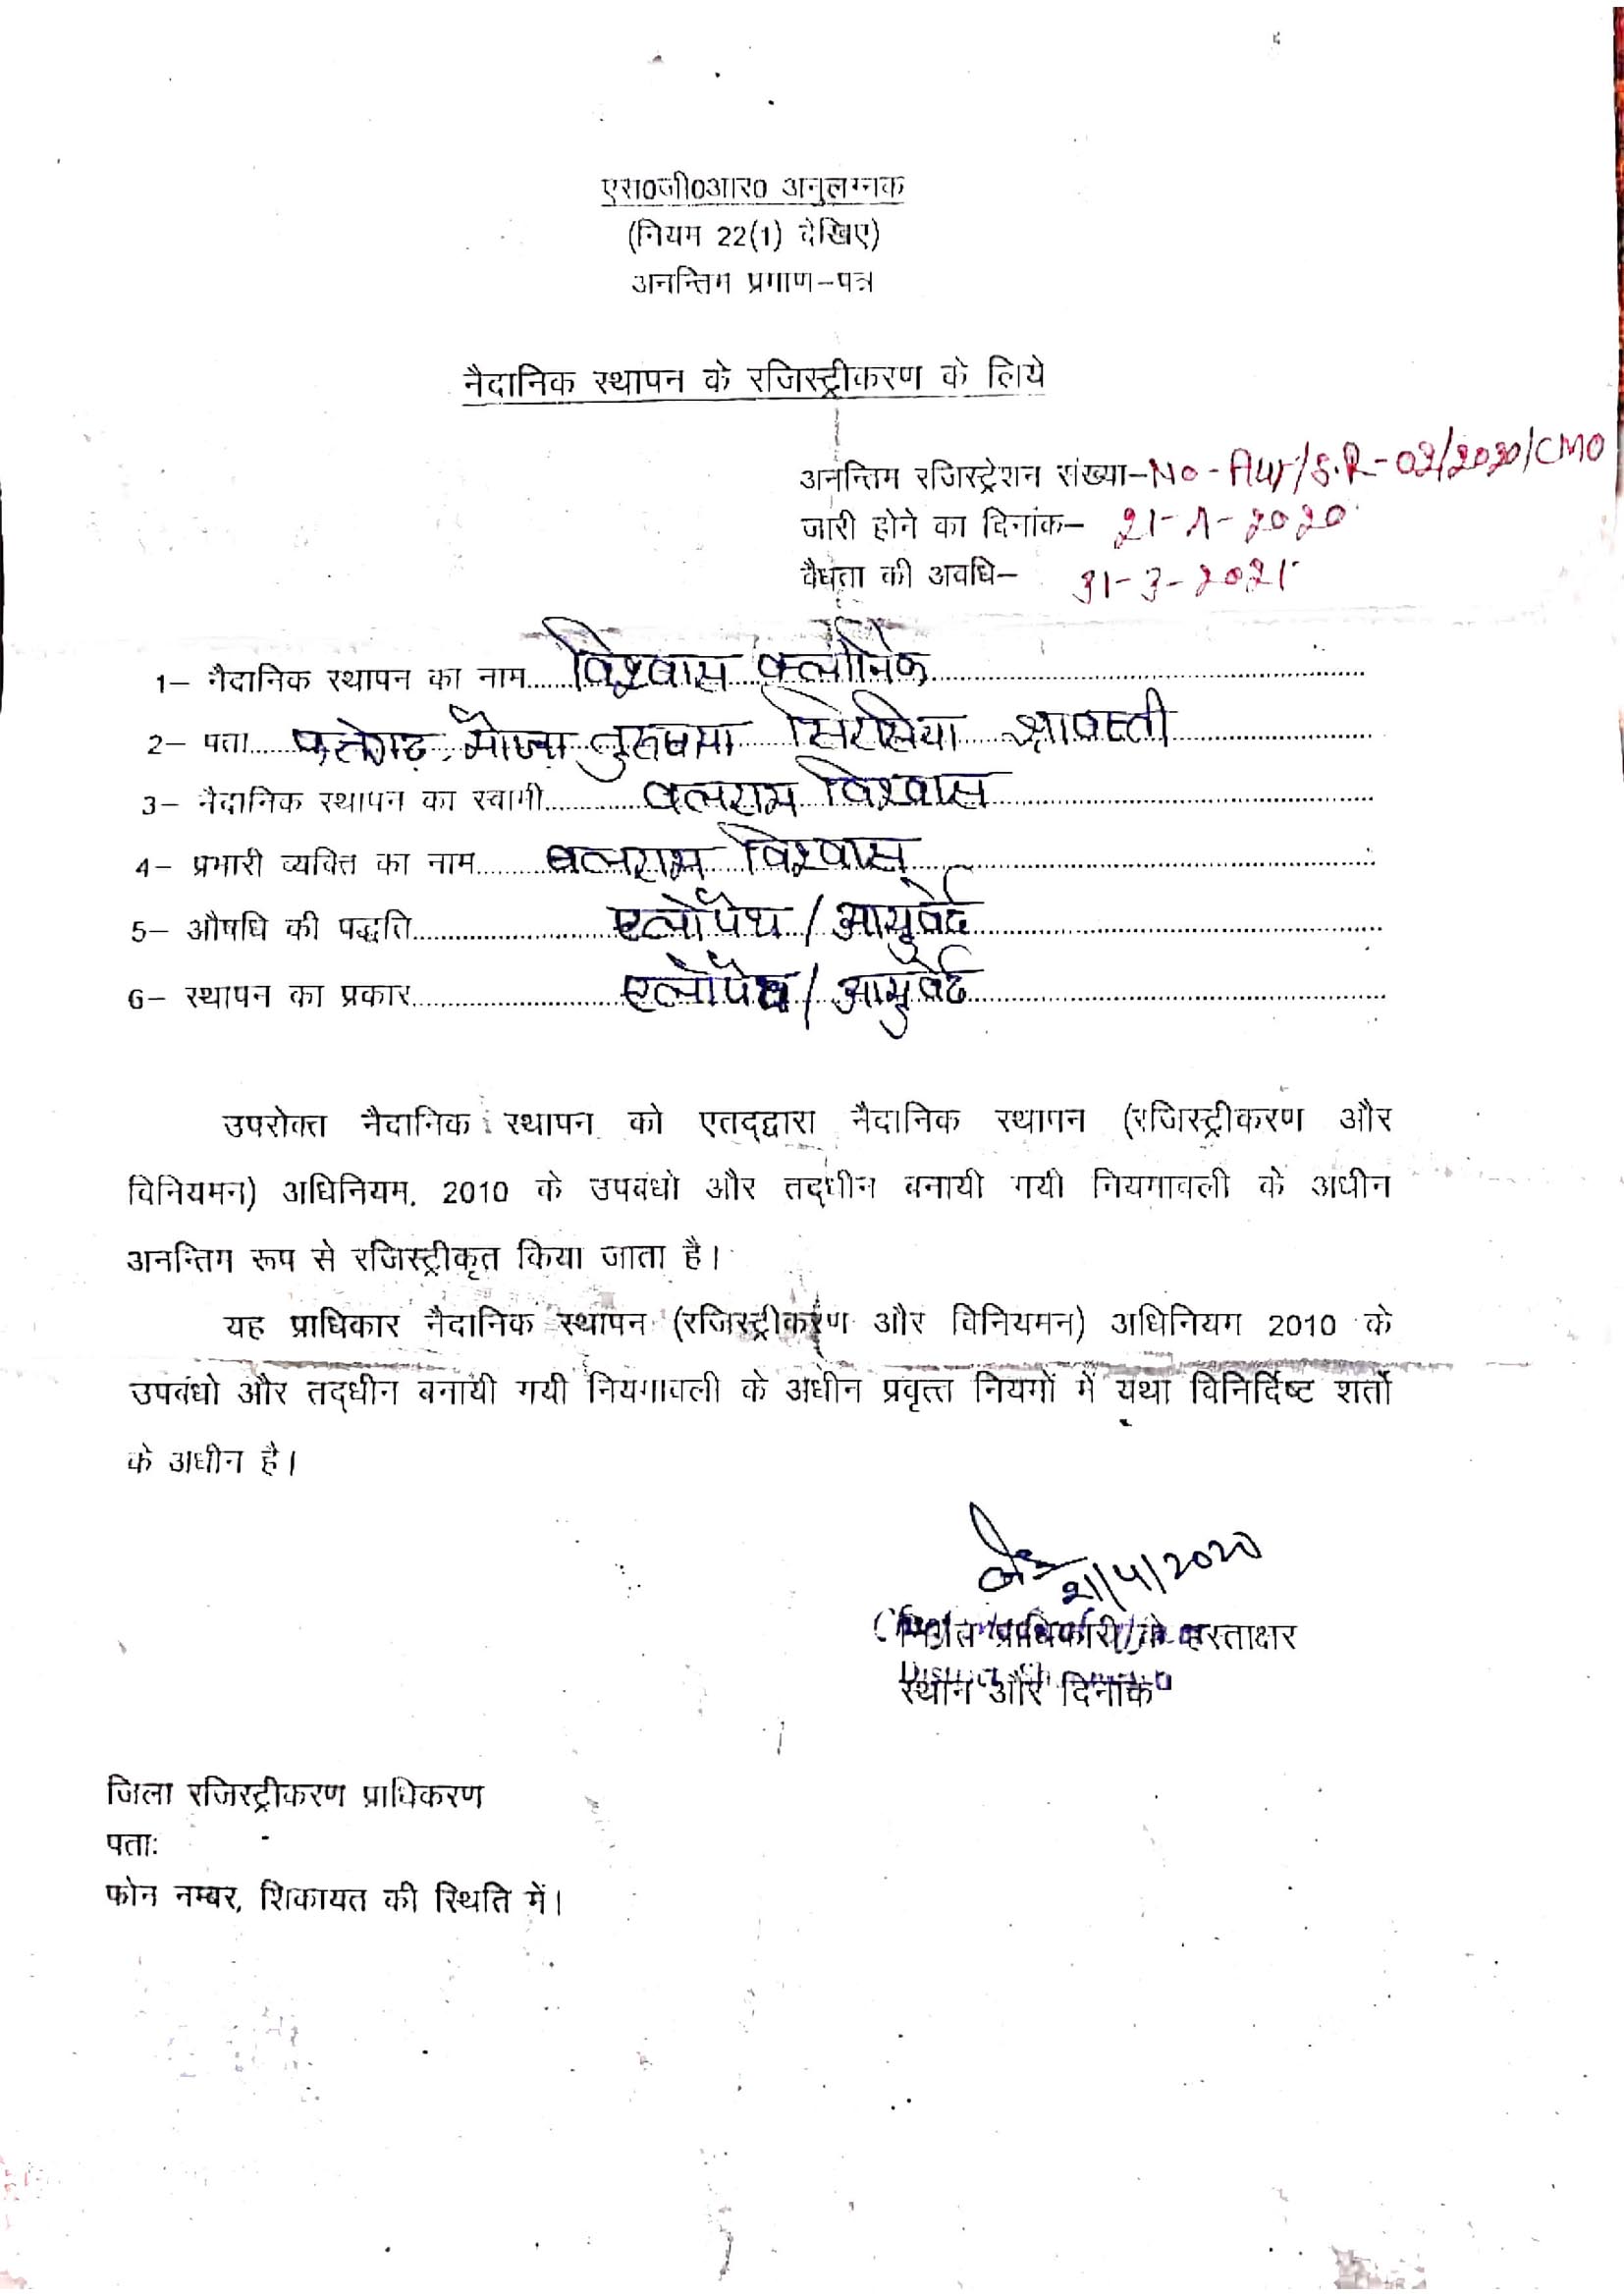 एस0जी0आर0 अनुलग्नक
(नियम 22(1) देखिए)
अनन्तिम प्रमाण-पत्र
नैदानिक स्थापन के रजिस्ट्रीकरण के लिये
अनन्तिम रजिस्ट्रेशन संख्या-No-Aur/S.R-02/2020/CMO
जारी होने का दिनांक- 21-4-2020
वैधता की अवधि- 31-3-2021
1- नैदानिक स्थापन का नाम विश्वास क्लीनिक
2- पता फत्तेगढ़ मौजा तुरुषमा सिरसिया श्रावस्ती
3- नैदानिक स्थापन का स्वामी वलराम विश्वास
4- प्रभारी व्यक्ति का नाम वलराम विश्वास
5- औषधि की पद्धति एलोपैथ / आयुर्वेद
6- स्थापन का प्रकार एलोपैथ / आयुर्वेद
उपरोक्त नैदानिक स्थापन को एतद्द्वारा नैदानिक स्थापन (रजिस्ट्रीकरण और
विनियमन) अधिनियम, 2010 के उपबंधो और तद्धीन बनायी गयी नियमावली के अधीन
अनन्तिम रूप से रजिस्ट्रीकृत किया जाता है।
यह प्राधिकार नैदानिक स्थापन (रजिस्ट्रीकरण और विनियमन) अधिनियम 2010 के
उपबंधो और तद्धीन बनायी गयी नियमावली के अधीन प्रवृत्त नियमों में यथा विनिर्दिष्ट शर्तो
के अधीन है।
21/4/2020
प्राधिकारी के हस्ताक्षर
स्थान और दिनांक
जिला रजिस्ट्रीकरण प्राधिकरण
पताः
फोन नम्बर, शिकायत की स्थिति में।